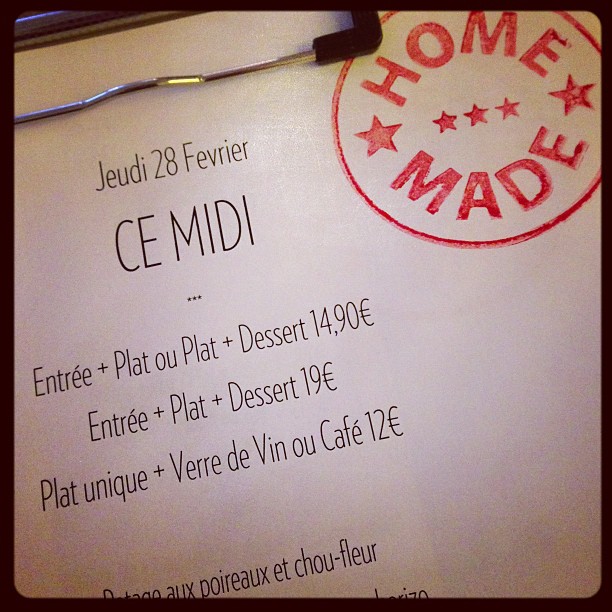 HOME
MADE
Jeudi 28 Fevrier
CE MIDI
***
Entrée + Plat ou Plat + Dessert 14,90€
Entrée + Plat + Dessert 19€
Plat unique + Verre de Vin ou Café 12€
Potage aux poireaux et chou-fleur